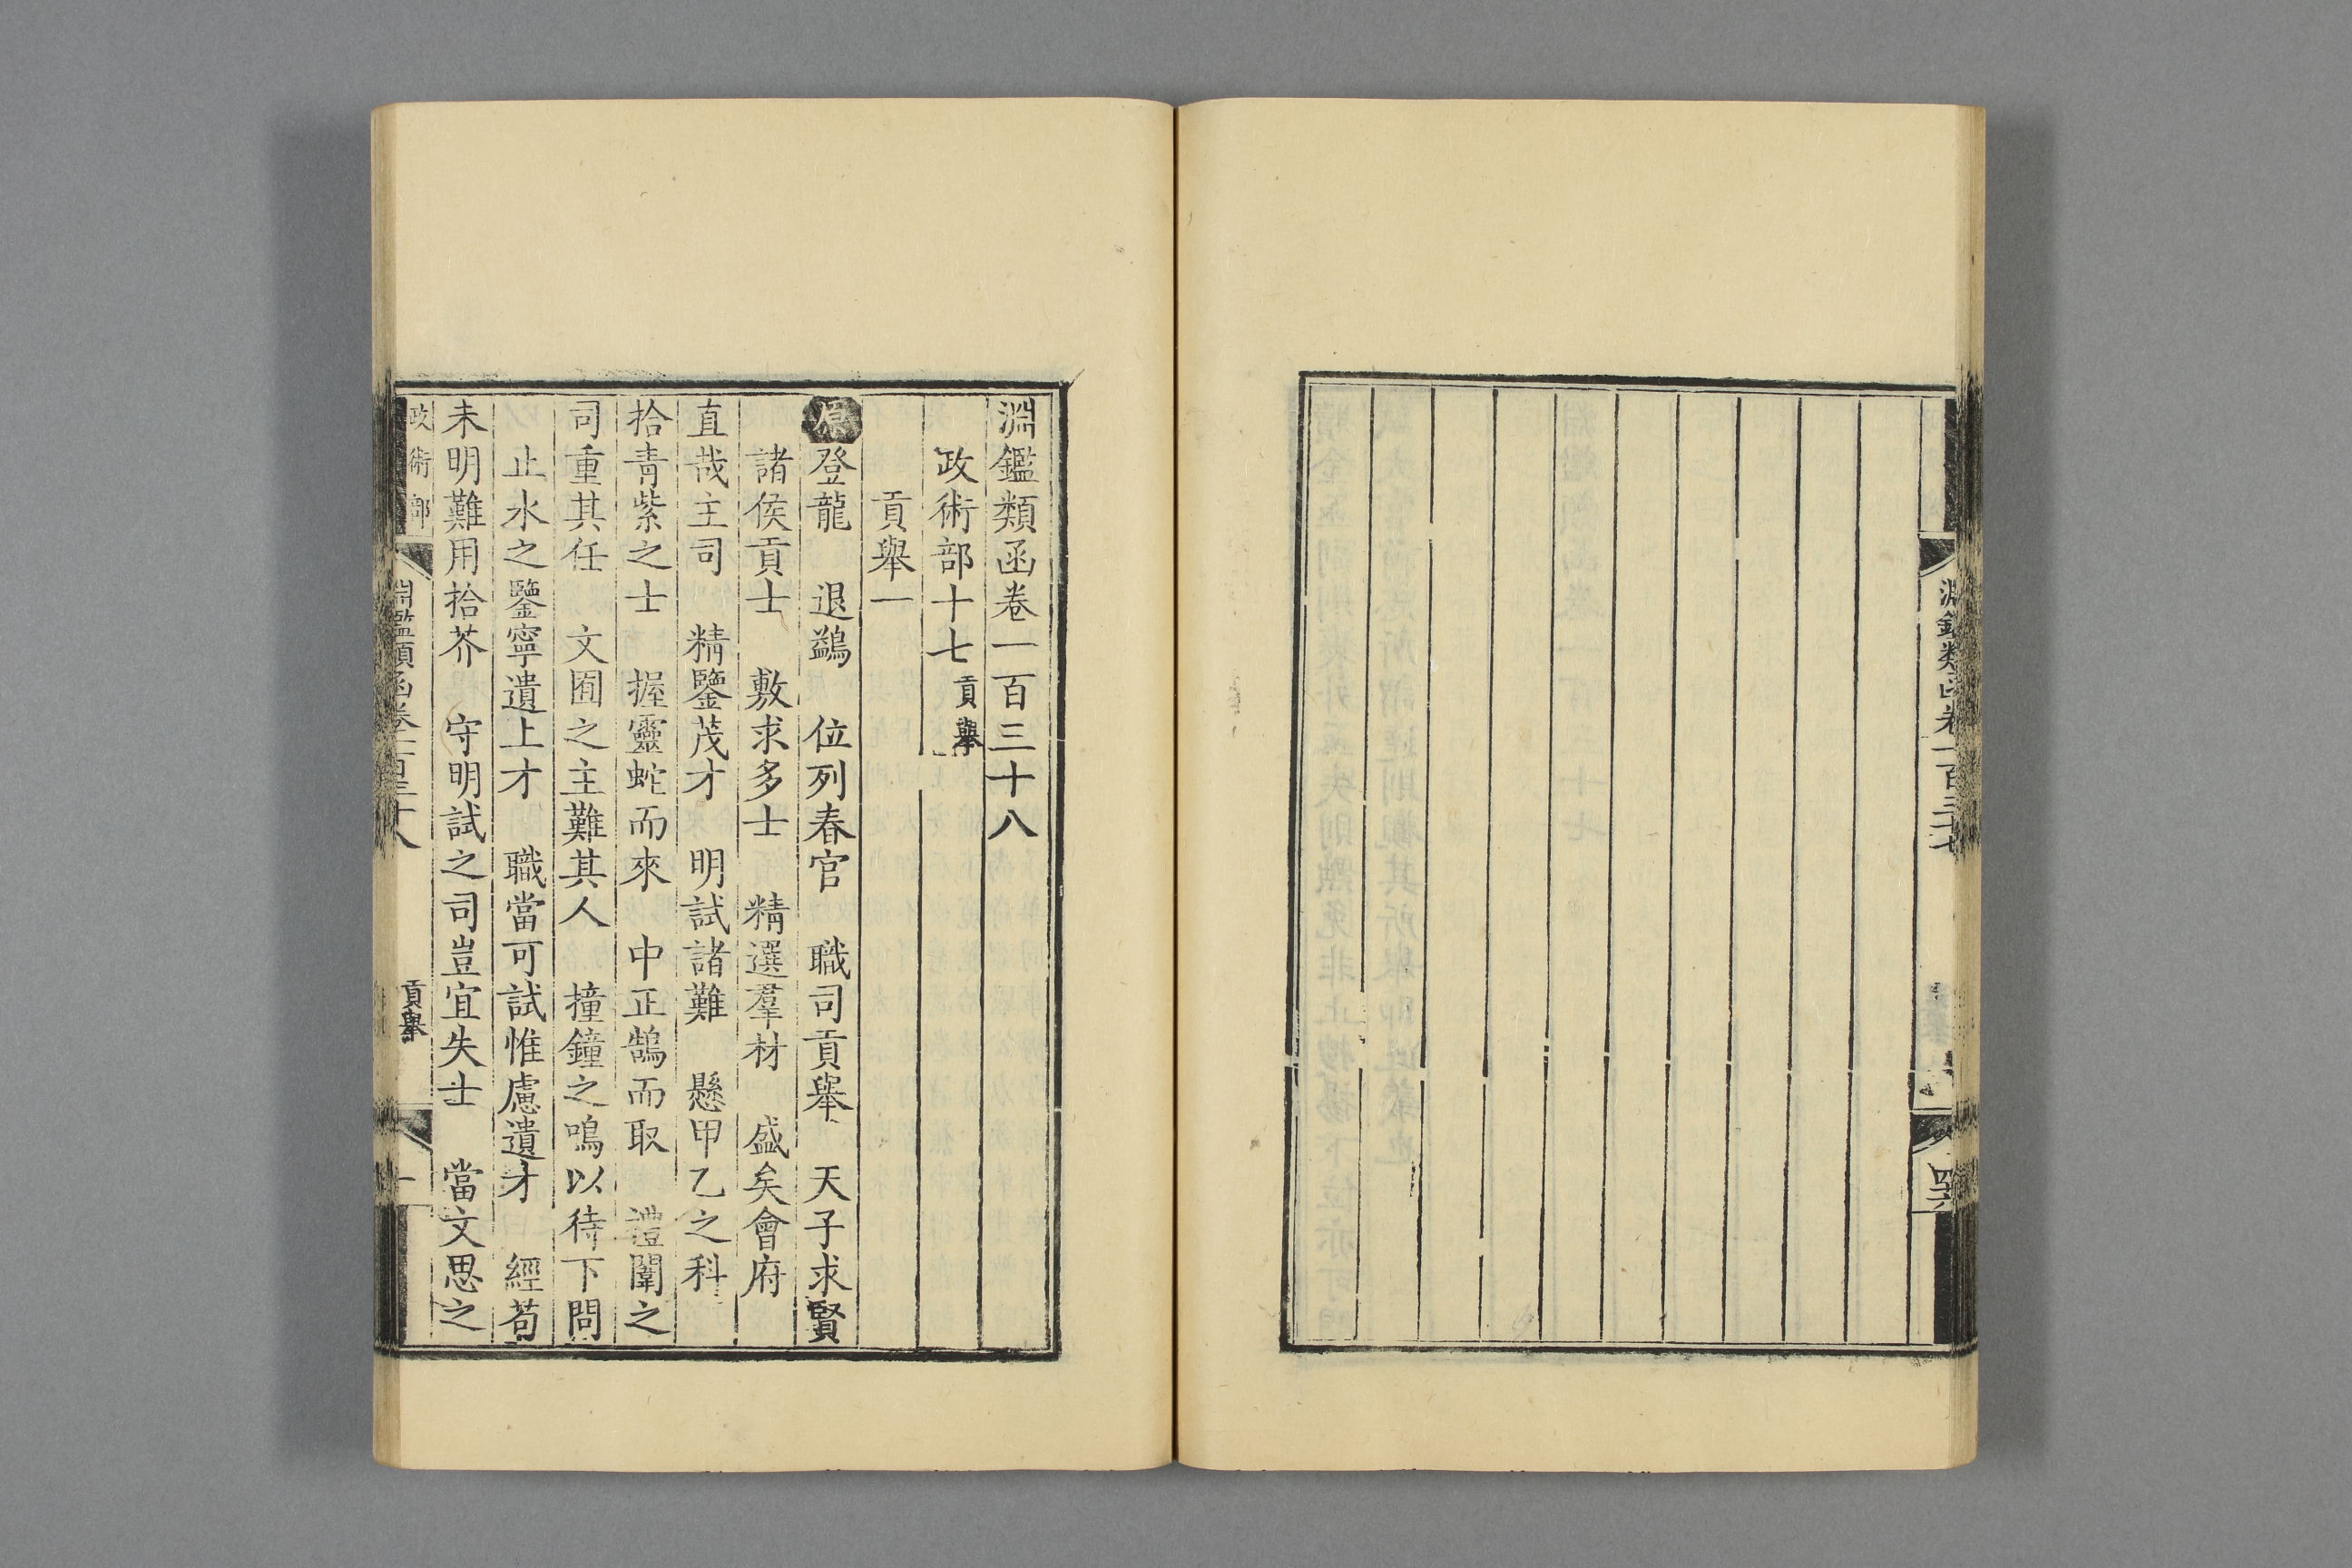 淵鑑類函卷一百三十七
四六
淵鑑類函卷一百三十八
政術部十七貢舉
貢舉一
原登龍　退鷁　位列春官　職司貢舉　天子求賢
諸侯貢士　敷求多士　精選羣材　盛矣會府
直哉主司　精鑒茂才　明試諸難　懸甲乙之科
拾青紫之士　握靈蛇而來　中正鵠而取　禮闈之
司重其任　文囿之主難其人　撞鐘之鳴以待下問
止水之鑒寧遺上才　職當可試惟慮遺才　經苟
未明難用拾芥　守明試之司豈宜失士　當文思之
政術部
淵鑑類函卷一百三十八
貢舉
一